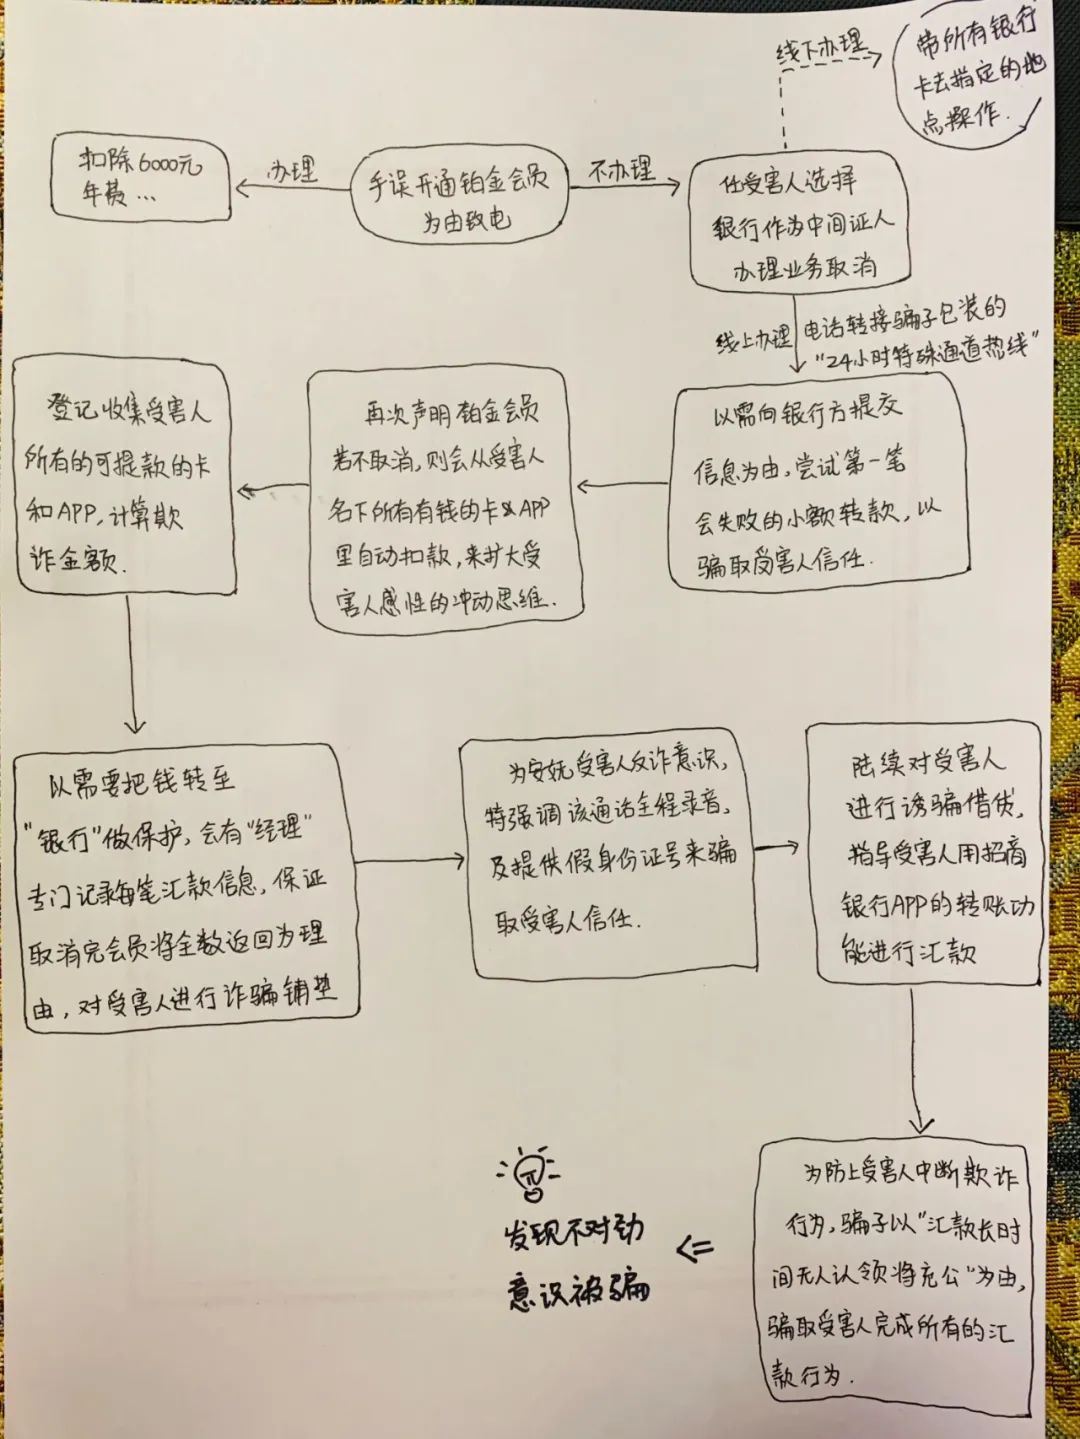 线下办理
带所有银行
卡去指定的地
点操作.
扣除6000元
年费…
办理
手误开通铂金会员
为由致电
不办理
任受害人选择
银行作为中间证人
办理业务取消
线上办理
电话转接骗子包装的
“24小时特殊通道热线”
以需向银行方提交
信息为由,尝试第一笔
会失败的小额转款,以
骗取受害人信任.
再次声明铂金会员
若不取消,则会从受害人
名下所有有钱的卡&APP
里自动扣款,来扩大受
害人感性的冲动思维.
登记收集受害人
所有的可提款的卡
和APP,计算欺
诈金额.
以需要把钱转至
“银行”做保护,会有“经理”
专门记录每笔汇款信息,保证
取消完会员将全数返回为理
由,对受害人进行诈骗铺垫
为安抚受害人反诈意识,
特强调该通话全程录音,
及提供假身份证号来骗
取受害人信任.
陆续对受害人
进行诱骗借贷,
指导受害人用招商
银行APP的转账功
能进行汇款
为防止受害人中断欺诈
行为,骗子以“汇款长时
间无人认领将充公”为由,
骗取受害人完成所有的汇
款行为.
发现不对劲
意识被骗